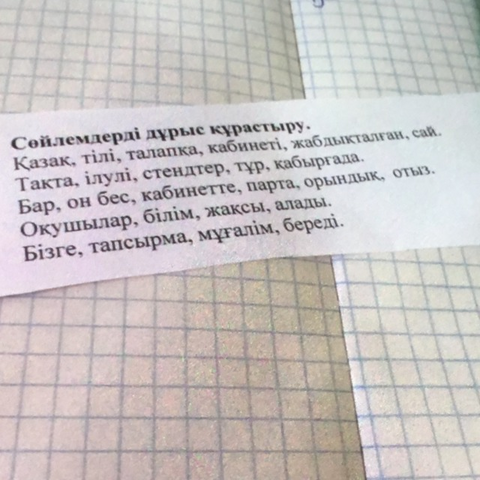 Сөйлемдерді дұрыс құрастыру.
Қазақ, тілі, талапқа, кабинеті, жабдықталған, сай.
Тақта, ілулі, стендтер, тұр, қабырғада.
Бар, он бес, кабинетте, парта, орындық, отыз.
Оқушылар, білім, жақсы, алады.
Бізге, тапсырма, мұғалім, береді.